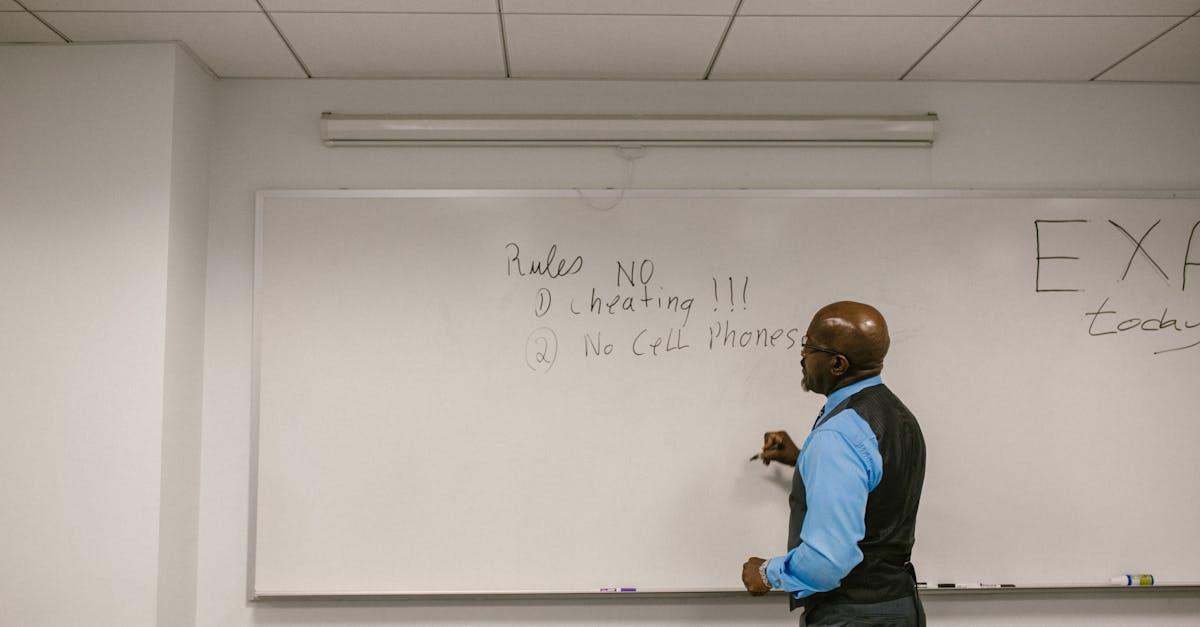 Rules
NO
① Cheating !!!
② No Cell Phones
EXA
today